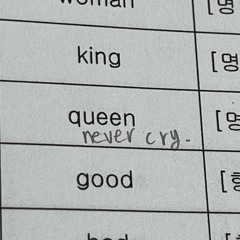 woman
king
[명
queen
[명
never cry.
good
[형
bad